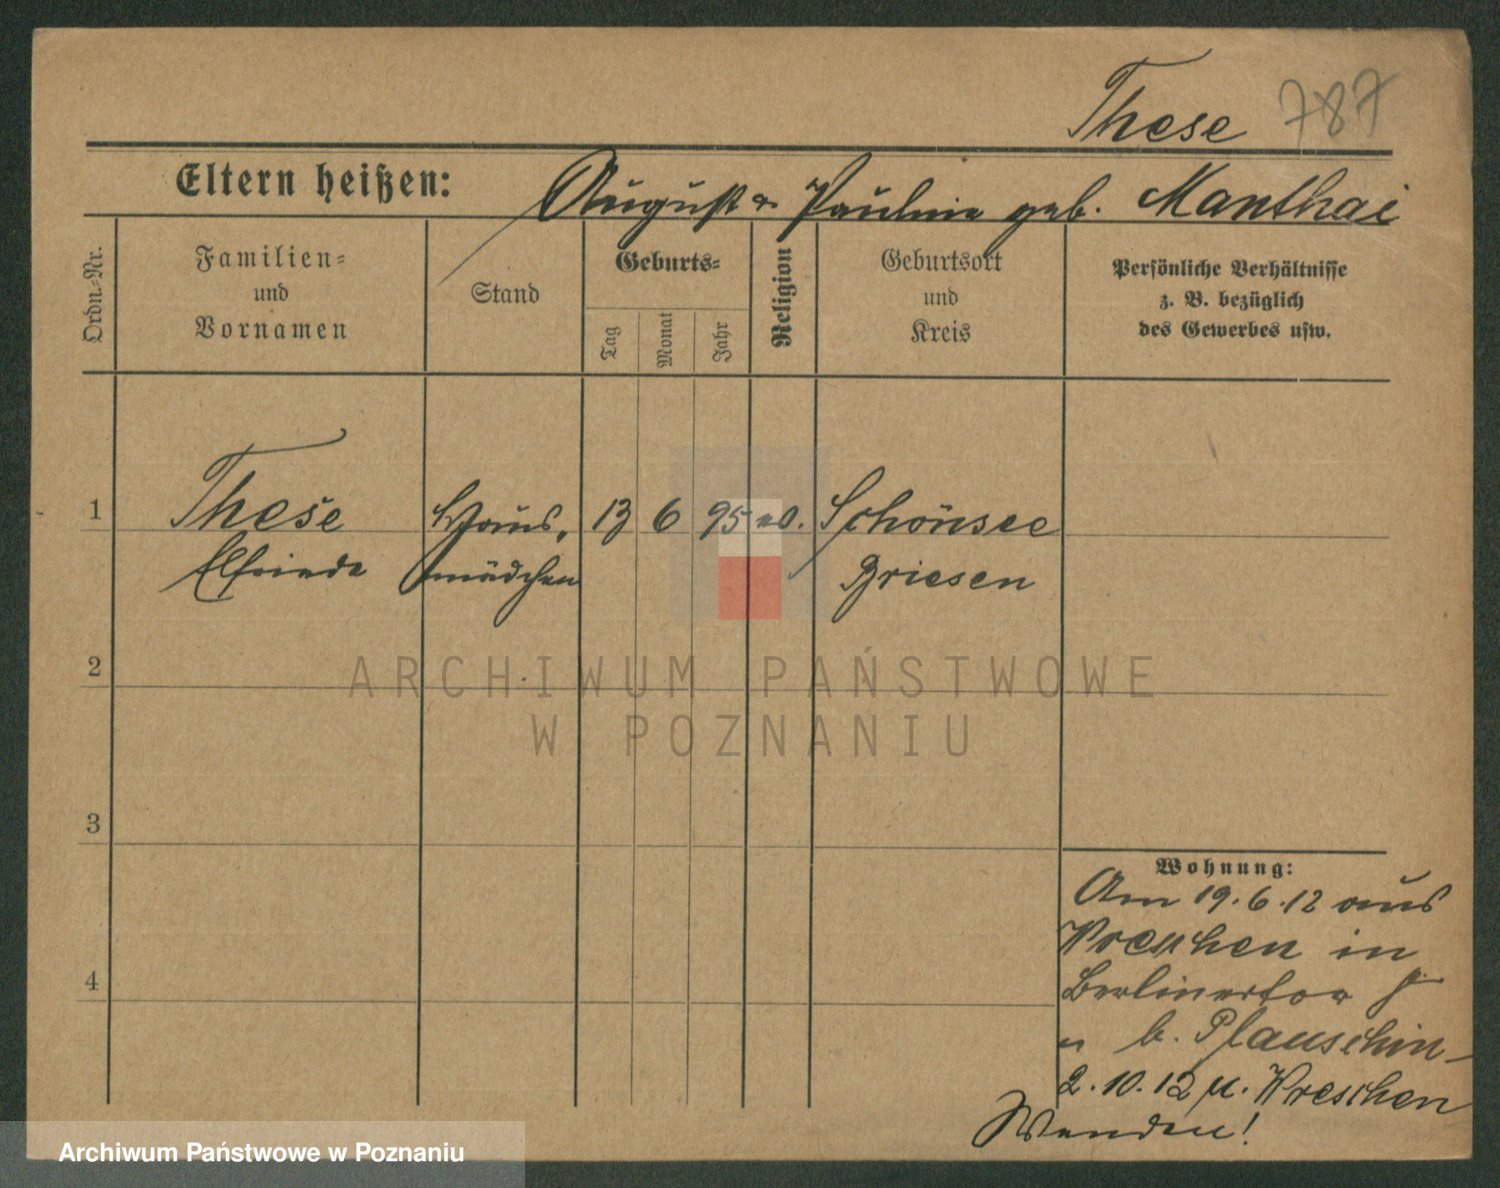 These 787
Eltern heißen: August u Pauline geb. Manthai
Ordn.-Nr.
Familien-
und
Vornamen
Stand
Geburts-
Tag
Monat
Jahr
Religion
Geburtsort
und
Kreis
Persönliche Verhältnisse
z. B. bezüglich
des Gewerbes usw.
1 These Haus, 13 6 95 ev. Schönsee
Elfriede mädchen Briesen
2
3
4
ARCHIWUM PAŃSTWOWE
W POZNANIU
Wohnung:
Am 19.6.12 aus
Wreschen in
Berlinertor
b. Plauschin
2.10.12 n. Wreschen
Wenden!
Archiwum Państwowe w Poznaniu